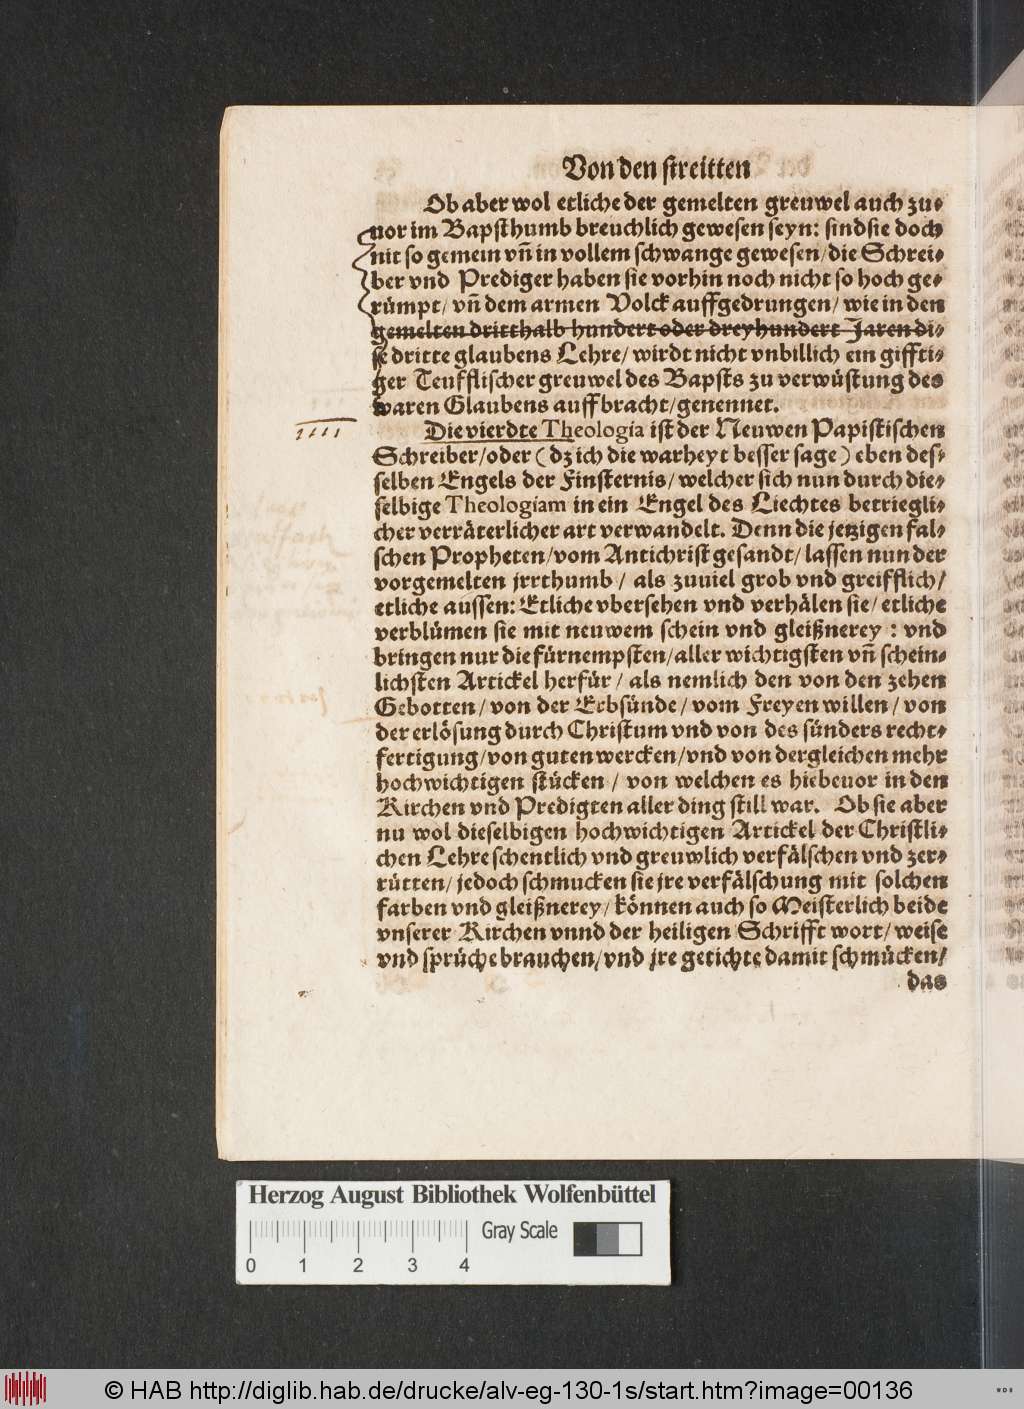 Von den streitten
Ob aber wol etliche der gemelten greuwel auch zu⸗
uor im Bapsthumb breuchlich gewesen seyn: sind sie doch
nit so gemein vñ in vollem schwange gewesen/ die Schrei⸗
ber vnd Prediger haben sie vorhin noch nicht so hoch ge⸗
rümpt/ vñ dem armen Volck auffgedrungen/ wie in den
gemelten dritthalb hundert oder dreyhundert Jaren di⸗
se dritte glaubens Lehre/ wirdt nicht vnbillich ein giffti⸗
ger Teufflischer greuwel des Bapsts zu verwüstung des
waren Glaubens auffbracht/ genennet.
IIII
Die vierdte Theologia ist der Neuwen Papistischen
Schreiber/ oder (dz ich die warheyt besser sage) eben des⸗
selben Engels der Finsternis/ welcher sich nun durch die⸗
selbige Theologiam in ein Engel des Liechtes betriegli⸗
cher verräterlicher art verwandelt. Denn die jetzigen fal⸗
schen Propheten/ vom Antichrist gesandt/ lassen nun der
vorgemelten jrrthumb/ als zuuiel grob vnd greifflich/
etliche aussen: Etliche vbersehen vnd verhälen sie/ etliche
verblümen sie mit neuwem schein vnd gleißnerey: vnd
bringen nur die fürnempsten/ aller wichtigsten vñ schein⸗
lichsten Artickel herfür/ als nemlich den von den zehen
Gebotten/ von der Erbsünde/ vom Freyen willen/ von
der erlösung durch Christum vnd von des sünders recht⸗
fertigung/ von guten wercken/ vnd von dergleichen mehr
hochwichtigen stücken/ von welchen es hiebeuor in den
Kirchen vnd Predigten aller ding still war. Ob sie aber
nu wol dieselbigen hochwichtigen Artickel der Christli⸗
chen Lehre schentlich vnd greuwlich verfälschen vnd zer⸗
rütten/ jedoch schmucken sie jre verfälschung mit solchen
farben vnd gleißnerey/ können auch so Meisterlich beide
vnserer Kirchen vnnd der heiligen Schrifft wort/ weise
vnd sprüche brauchen/ vnd jre getichte damit schmücken/
das
Herzog August Bibliothek Wolfenbüttel
Gray Scale
0 1 2 3 4
© HAB http://diglib.hab.de/drucke/alv-eg-130-1s/start.htm?image=00136